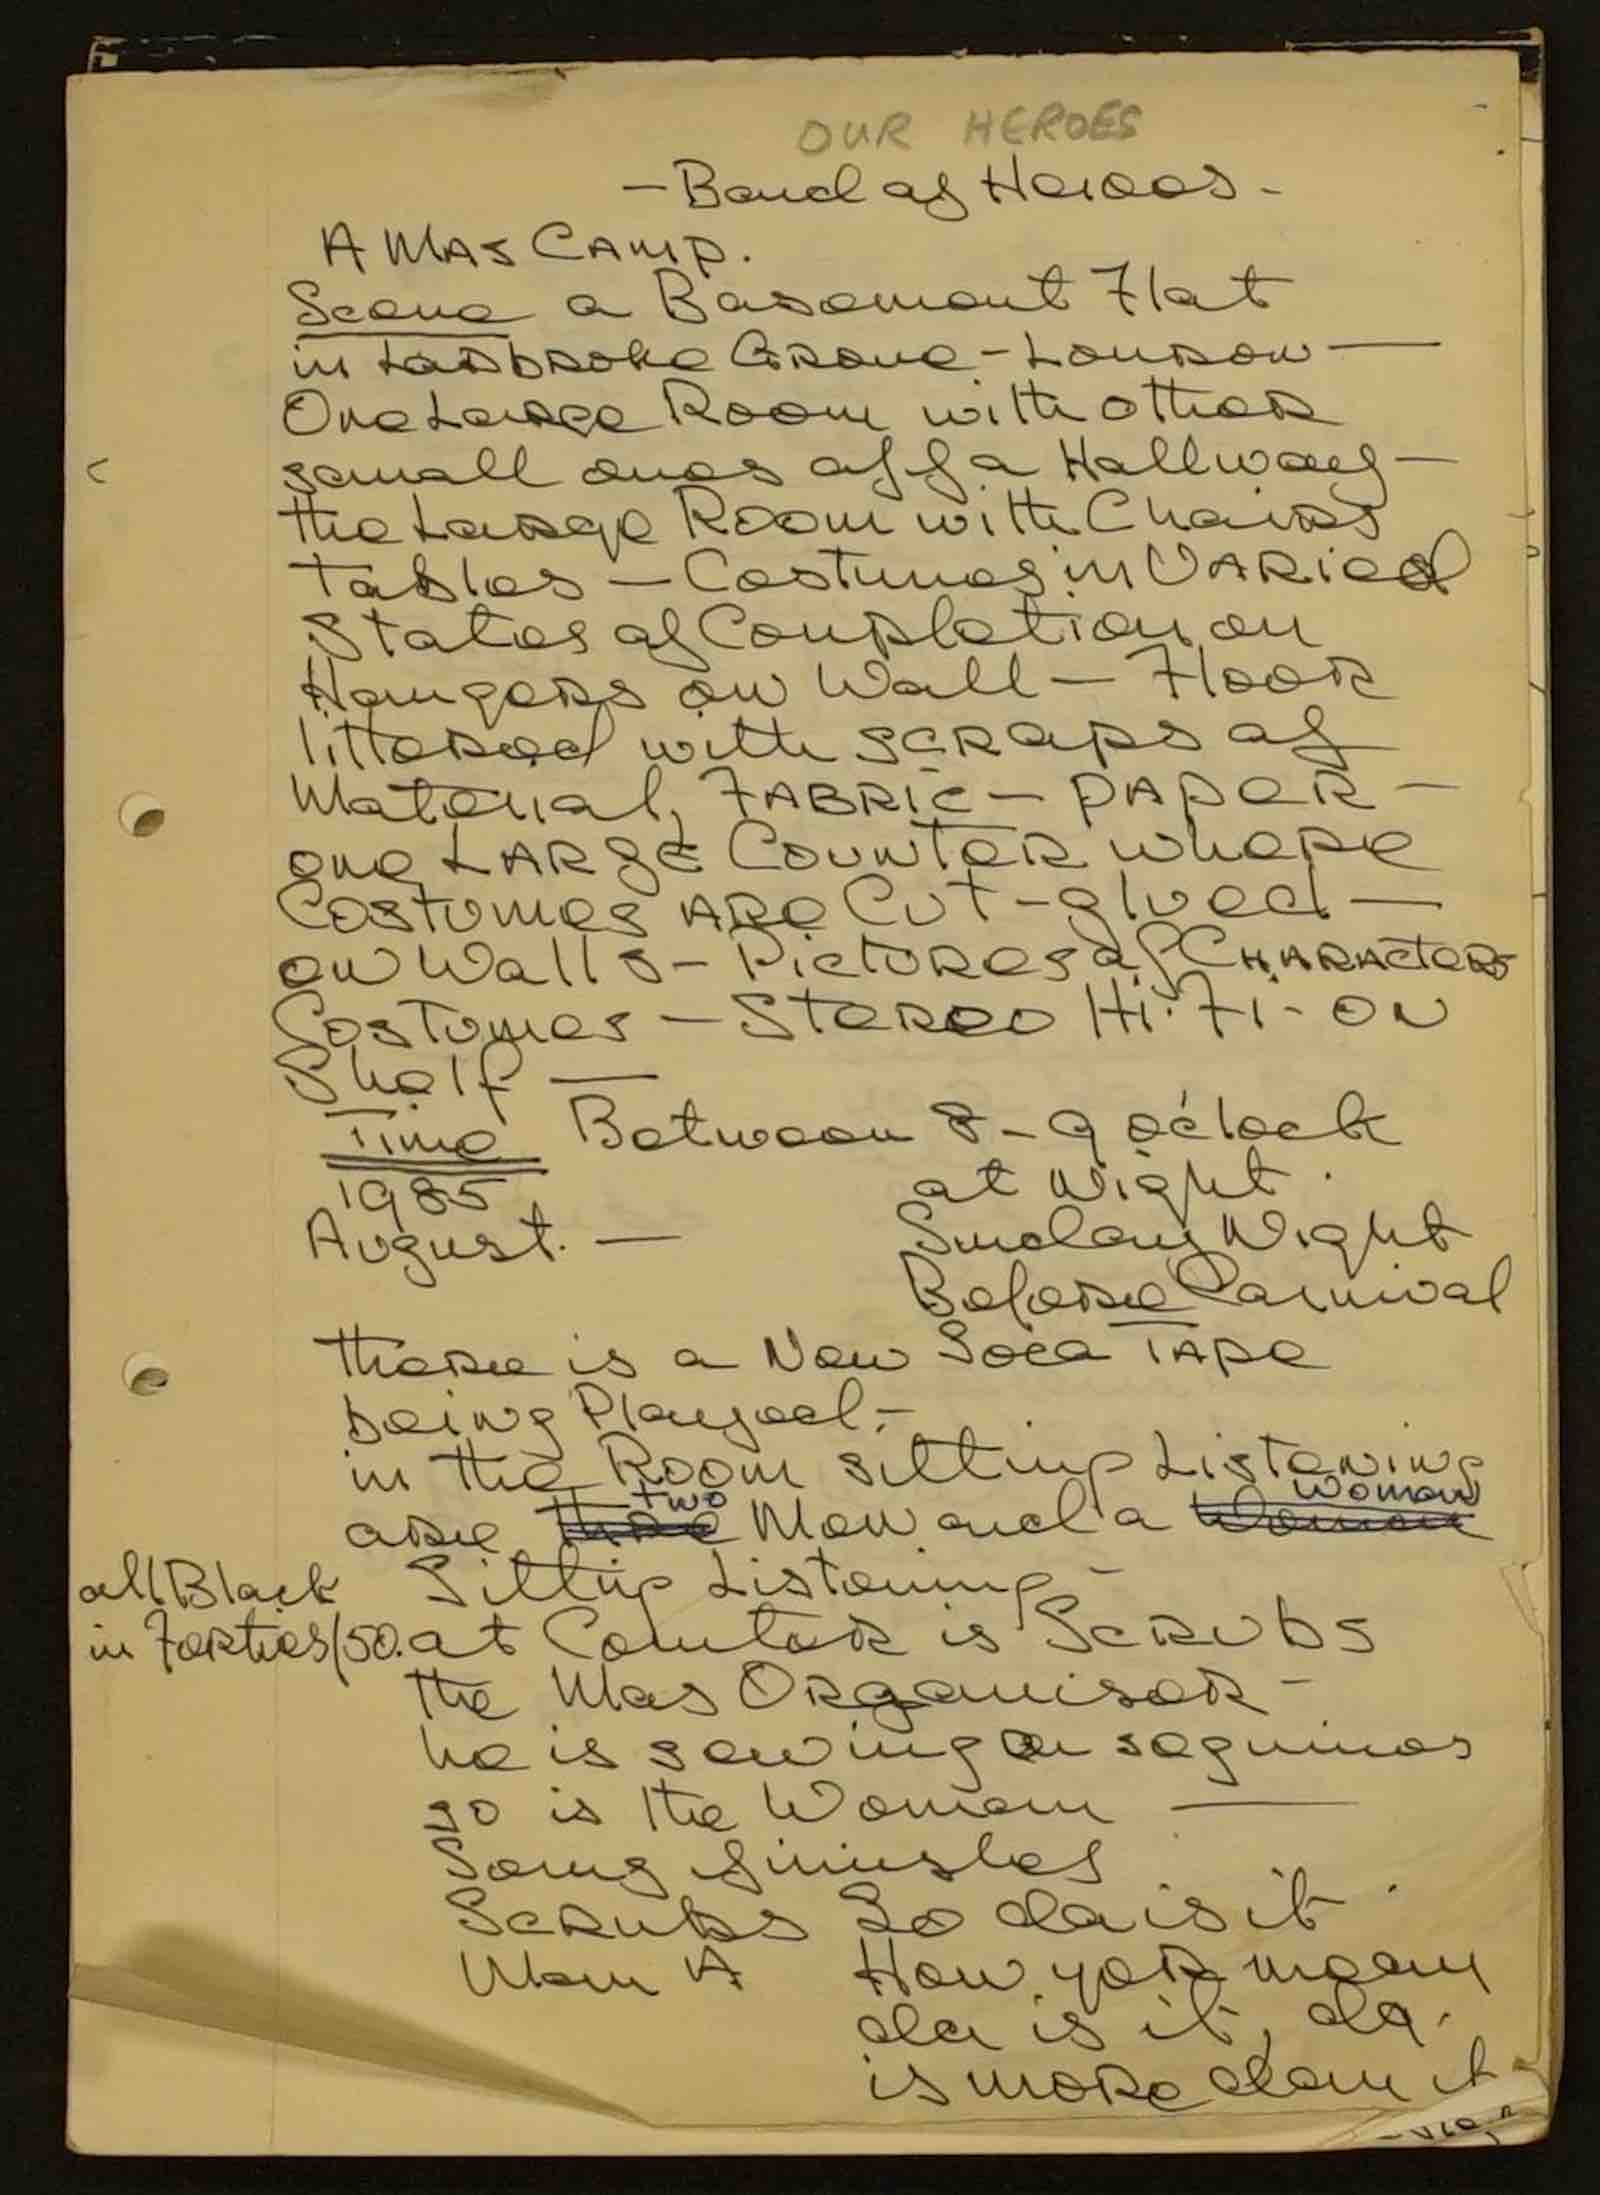 OUR HEROES
- Band of Heroes -
A MAS CAMP.
Scene a Basement Flat
in Ladbroke Grove - London —
One Large Room with other
small ones off a Hallway —
the Large Room with Chairs
Tables — Costumes in VARied
States of Completion on
Hangers on Wall — Floor
littered with scraps of
Material, FABRic — PAPeR —
one LARge Counter where
Costumes ARe Cut - glued —
on Walls - Pictures of CHARActers
Costumes — Stereo Hi. Fi - ON
Shelf —
Time Between 8 - 9 o'clock
1985 at Night.
August. — Sunday Night
Before Carnival
there is a New Soca TAPe
being Played. -
in the Room sitting Listening
two woman
are three Men and a Woman
all Black Sitting Listening -
in Forties/50. at Counter is Scrubs
the Mas Organiser -
he is sewing on sequines
so is the Woman —
Song finishes
Scrubs So da is it.
Man A How yor mean
da is it, da.
is more dan it